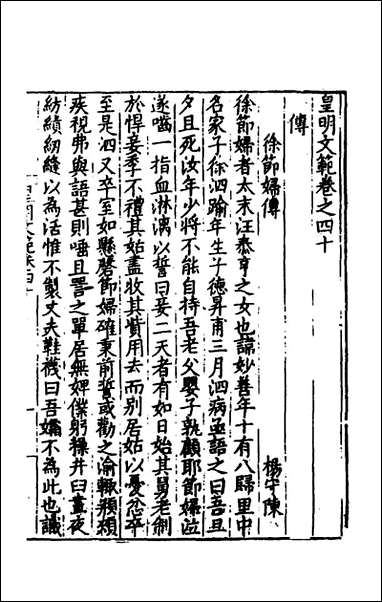 皇明文範卷之四十
傳
徐節婦傳
楊守陳
徐節婦者太末汪泰亨之女也諱妙善年十有八歸里中
名家子徐泗踰年生子德昇甫三月泗病亟語之曰吾旦
夕且死汝年少將不能自持吾老父嬰子孰顧耶節婦泣
遂嚙一指血淋漓以誓曰妾二天者有如日始其舅老制
於悍妾季不禮其姑盡收其貲用去而別居姑以憂忿卒
至是泗又卒室如縣罄節婦確秉前誓或勸之渝輒頩頩
疾視弗與語甚則唾且詈之單居無婢僕躬操井臼晝夜
紡績紉縫以為活惟不製丈夫鞋襪曰吾孀不為此也議
皇明文範卷四十